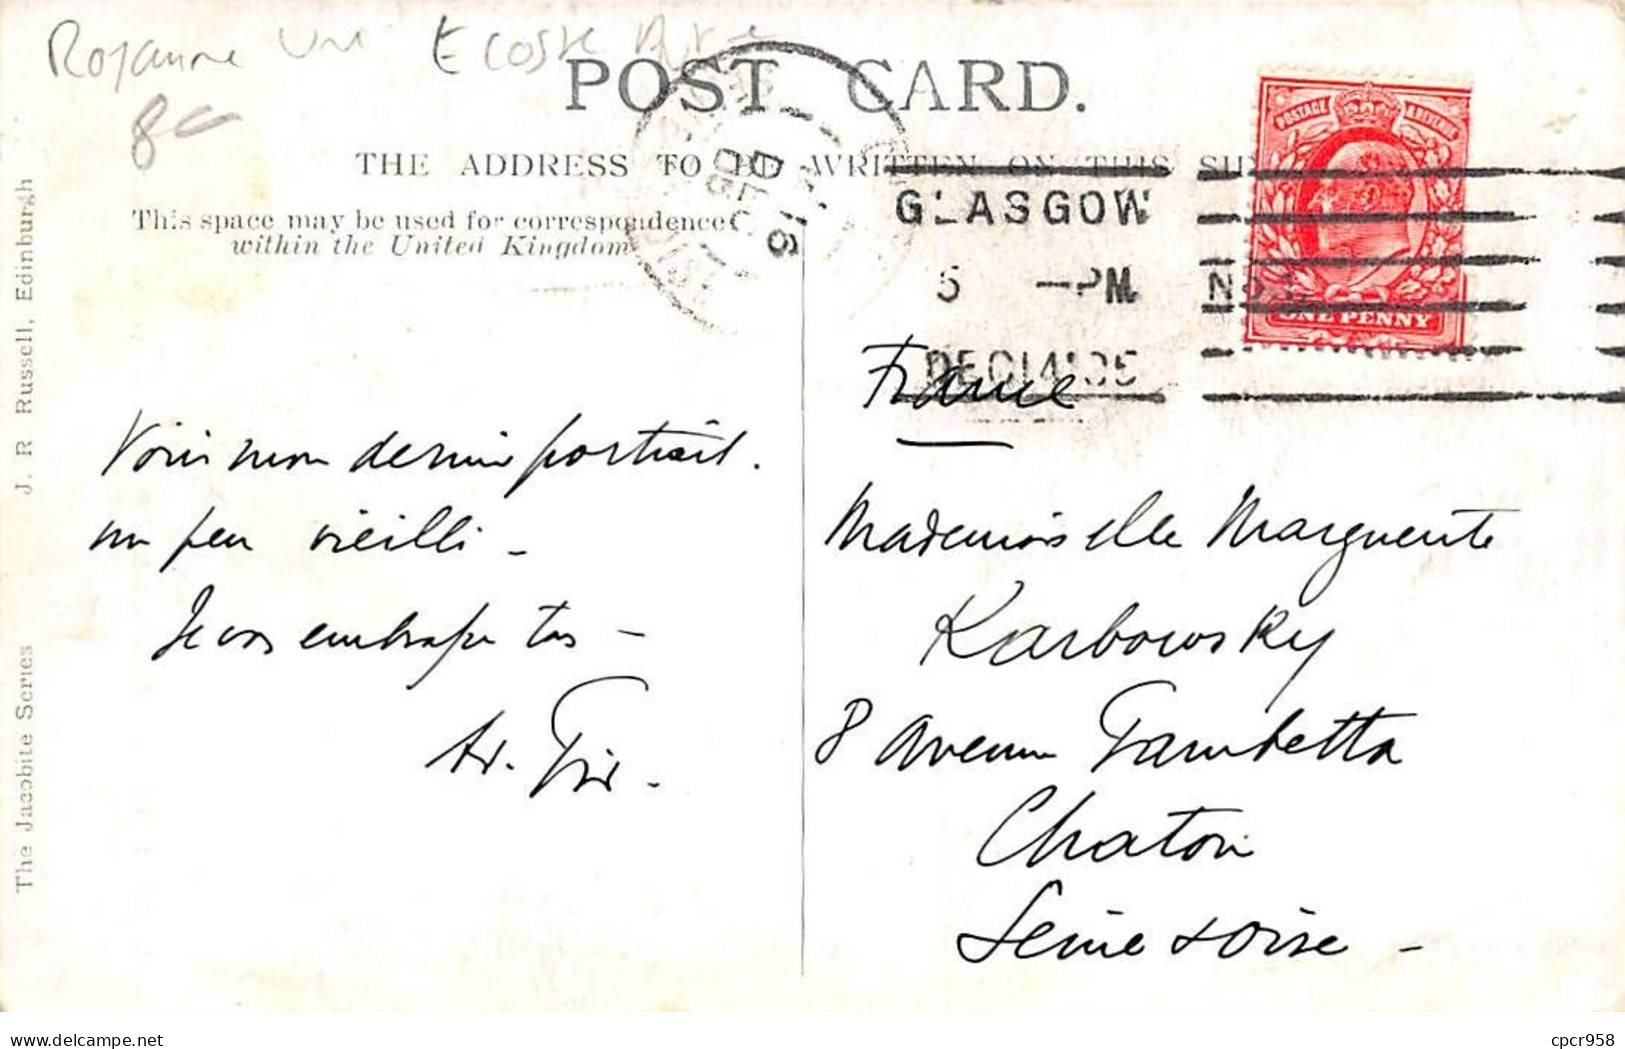 Royaume Uni Ecosse
8€
POST CARD.
THE ADDRESS TO BE WRITTEN ON THIS SIDE
This space may be used for correspondence
within the United Kingdom.
J. R. Russell, Edinburgh
The Jacobite Series
POSTAGE & REVENUE
ONE PENNY
GLASGOW
5 - PM
DEC 14 '05
France
Voici mon dernier portrait.
un peu vieilli -
Je vous embrasse tous -
Mademoiselle Marguerite
Karbowsky
8 Avenue Gambetta
Chatou
Seine & Oise -
www.delcampe.net
cpcr958